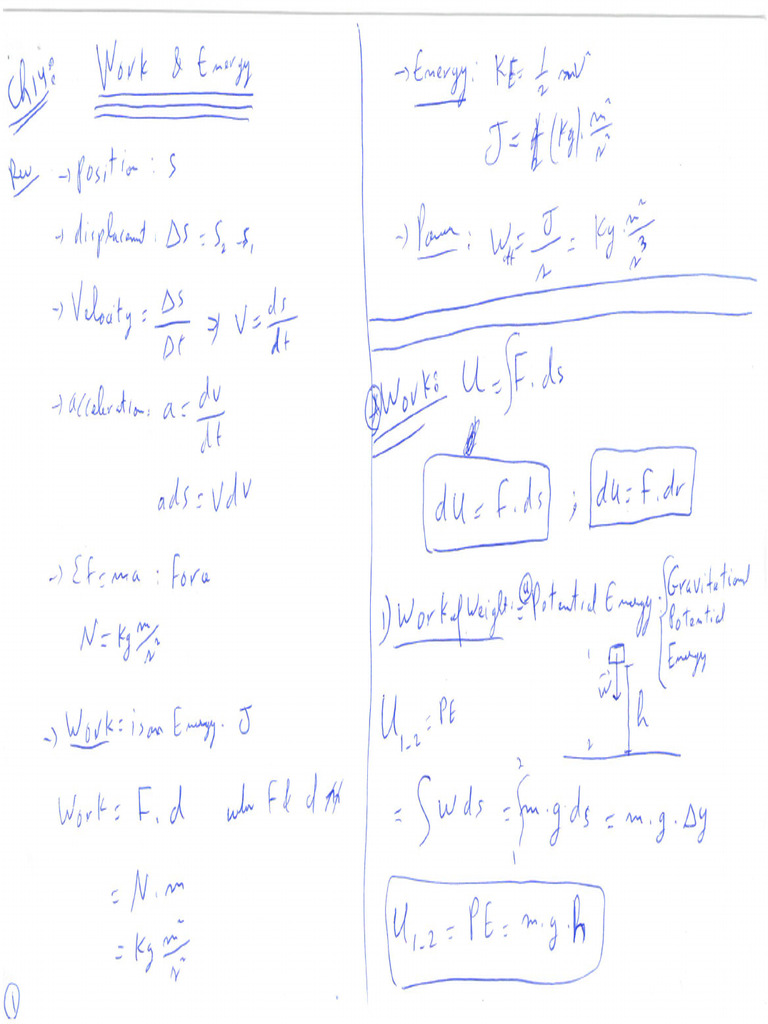 Ch14: Work & Energy
Rev → Position: S
→ displacement: ΔS = S₂ - S₁
→ Velocity = ΔS/Δt ⇒ V = ds/dt
→ acceleration: a = dv/dt
ads = Vdv
→ ΣF = ma : Force
N = Kg m/s²
→ Work: is an Energy. J
Work = F . d when F & d //
= N . m
= Kg m²/s²
①
→ Energy: KE = 1/2 mv²
J = (Kg) . m²/s²
→ Power: Watt = J/s = Kg . m²/s³
Work: U = ∫F . ds
du = F . ds ; du = F . dr
1) Work of Weight = Potential Energy {Gravitational
Potential
Energy
1
w
h
2
U₁₋₂ = PE
= ∫ W ds = ∫₁² m . g . ds = m . g . Δy
U₁₋₂ = PE = m . g . h